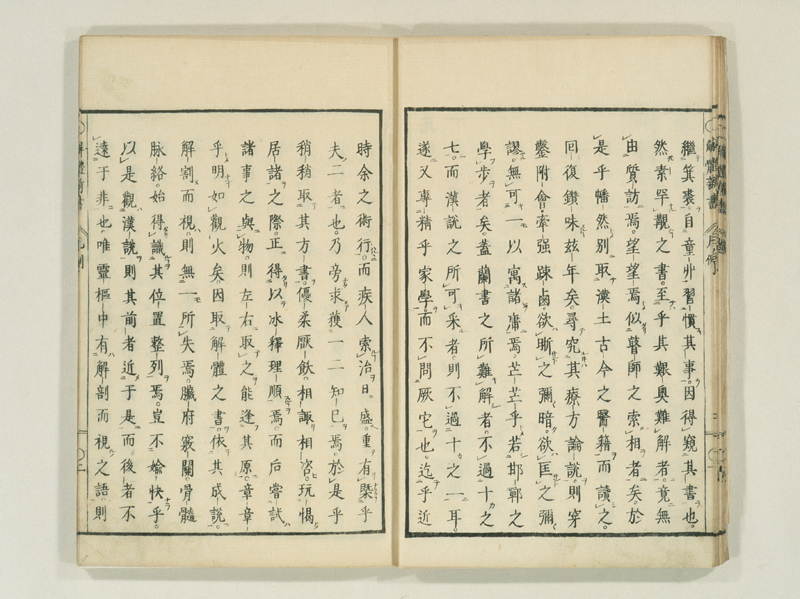 繼箕裘自童丱習慣其事因得窺其書也
然素罕覯之書至乎其艱奥難解者竟無
由質訪焉望望焉似瞽師之索相者矣於
是乎幡然別取漢土古今之醫籍而讀之
回復鑽味茲年矣尋究其療方論說則穿
鑿附會牽强踈鹵欲晰之彌暗欲匡之彌
謬無可一以寓諸庸焉芒芒乎若邯鄲之
學步者矣蓋蘭書之所難解者不過十之
七而漢說之所可采者則不過十之一耳
遂又專精乎家學而不問厥它也迄乎近
時余之術行而疾人索治日盛重有槩乎
夫二者也乃旁求獲一二知己焉於是乎
稍稍取其方書優柔厭飫相諏相咨玩愒
居諸之際正得以冰釋理順焉而后嘗試
諸事之與物則左右取之能逢其原章章
乎明如觀火矣因取解體之書依其成說
解割而視則無一所失焉臟府竅關骨髓
脉絡始得識其位置整列焉豈不婾快乎
以是觀漢說則其前者近于是而後者不
遠于非也唯靈樞中有解剖而視之語則